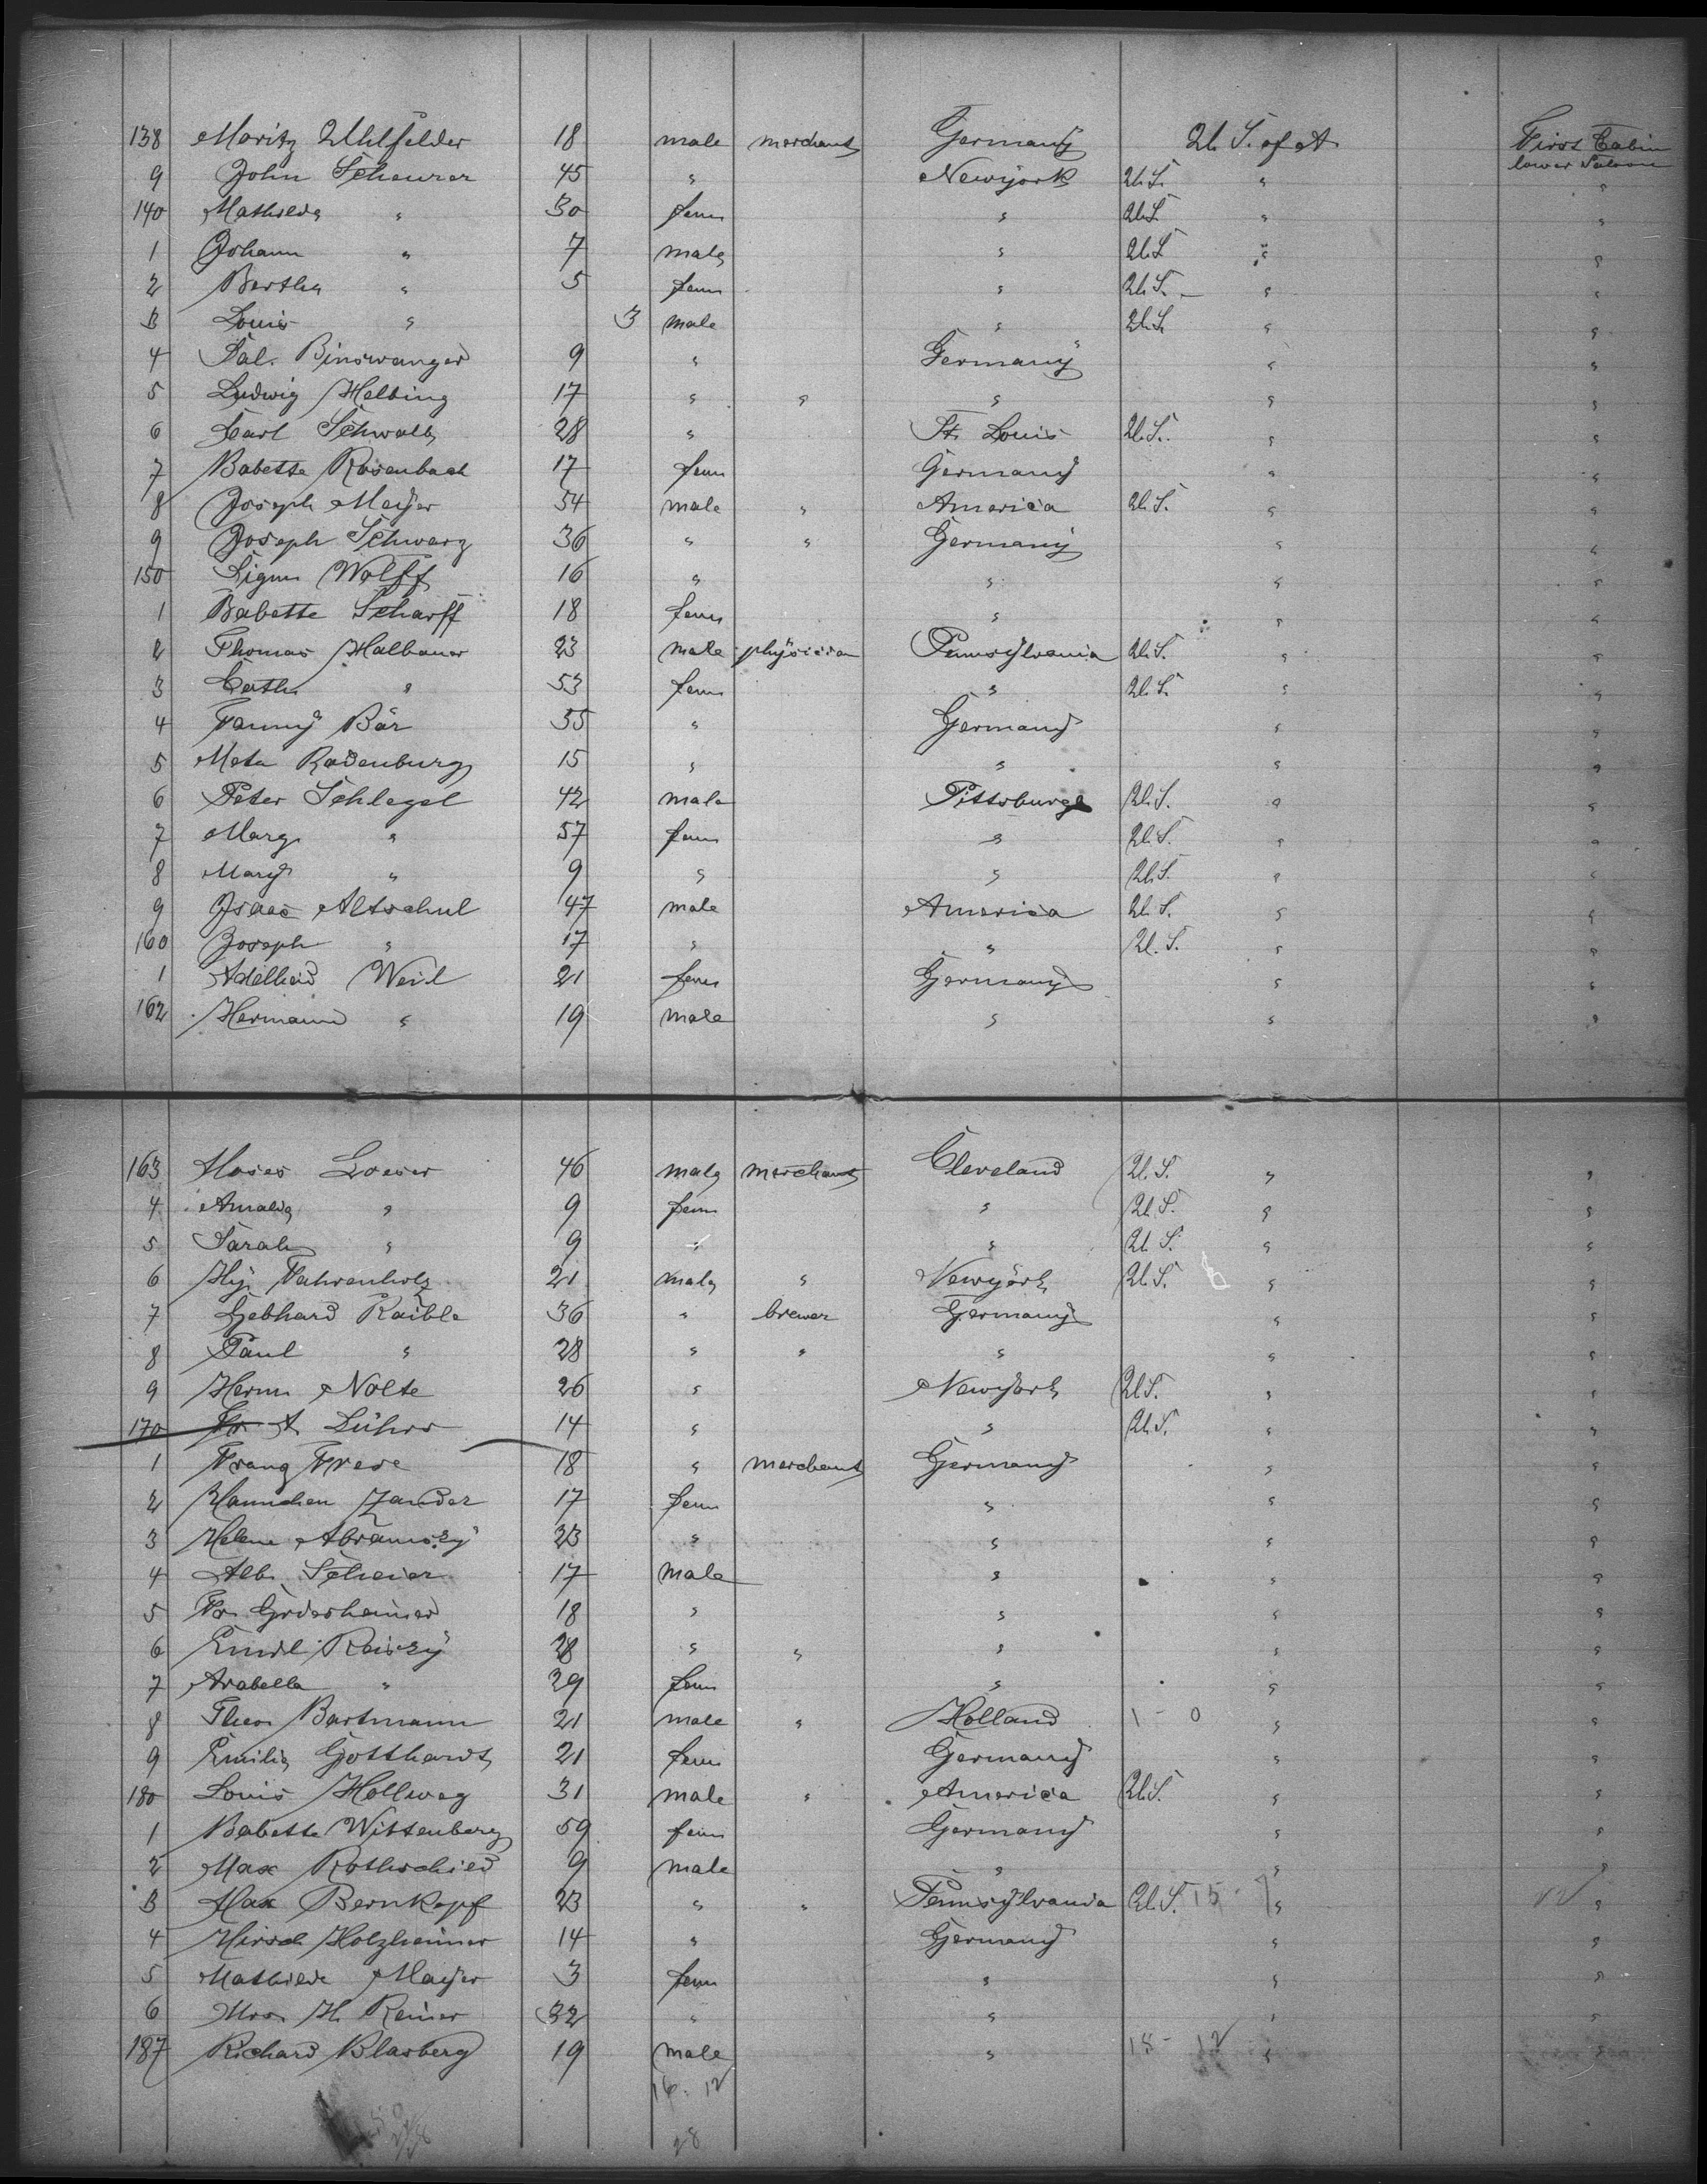 138 Moritz Uhlfelder 18 male merchant Germany U. S. of A First Cabin
lower Saloon
9 John Scheurer 45 " Newyork U.S. " "
140 Mathilde " 30 fem " U.S. " "
1 Johann " 7 male " U.S. " "
2 Bertha " 5 fem " U.S. " "
3 Louis " 3 male " U.S. " "
4 Sal. Binswanger 9 " Germany " "
5 Ludwig Helbing 17 " " " " "
6 Carl Schwalb 28 " St. Louis U.S. " "
7 Babette Rosenbach 17 fem Germany " "
8 Joseph Meyer 54 male " America U.S. " "
9 Joseph Schwarz 36 " " Germany " "
150 Sigm Wolff 16 " " " "
1 Babette Scharff 18 fem " " "
2 Thomas Halbauer 23 male physician Pennsylvania U.S. " "
3 Cath " 53 fem " U.S. " "
4 Fanny Bär 35 " Germany " "
5 Meta Radenburg 15 " " " "
6 Peter Schlegel 42 male Pittsburge U.S. " "
7 Marg. " 57 fem " U.S. " "
8 Mary " 9 " " U.S. " "
9 Isaac Altschul 47 male America U.S. " "
160 Joseph " 17 " " U.S. " "
1 Adelheid Weil 21 fem Germany " "
162 Hermann " 19 male " " "
163 Moses Loeser 46 male merchant Cleveland U.S. " "
4 Amalia " 9 fem " U.S. " "
5 Sarah " 9 " " U.S. " "
6 Hy. Fahrenholz 21 male " Newyork U.S. " "
7 Gebhard Raible 36 " brewer Germany " "
8 Paul " 28 " " " " "
9 Herm Nolte 26 " Newyork U.S. " "
170 Fr. A Lührs 14 " " U.S. " "
1 Franz Frese 18 " merchant Germany " "
2 Hannchen Zander 17 fem " " "
3 Helene 23 " " " "
4 Alb. Scheier 17 male " " "
5 Fr. 18 " " " "
6 Emil 28 " " " " "
7 Arabella " 29 fem " " "
8 Theo. Bartmann 21 male " Holland 1 - 0 " "
9 Emilie Gotthardt 21 fem Germany " "
180 Louis Hollweg 31 male " America U.S. " "
1 Babette Wittenberg 59 fem Germany " "
2 Max Rothschild 9 male " " "
3 Max Bernkopf 23 " " Pennsylvania U.S. 15 " "
4 Hirsch Holzheimer 14 " Germany " "
5 Mathilde Mayer 3 fem " " "
6 Mrs. H. Reiner 32 " " " "
187 Richard Blasberg 19 male " 18 - 12 " "
16. 12
28